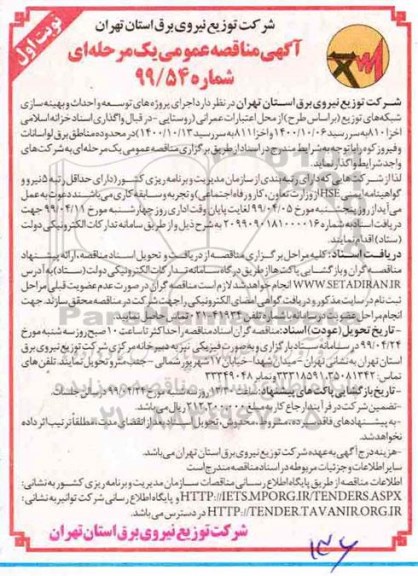 شرکت توزیع نیروی برق استان تهران
نوبت اول
آگهی مناقصه عمومی یک مرحله‌ای
شماره ۹۹/۵۴
شرکت توزیع نیروی برق استان تهران در نظر دارد اجرای پروژه های توسعه و احداث و بهینه سازی
شبکه‌های توزیع (براساس طرح) از محل اعتبارات عمرانی (روستایی - در قبال واگذاری اسناد خزانه اسلامی
اخزا ۸۱۰ به سررسید ۱۴۰۰/۱۰/۰۶ و اخزا ۸۱۱ به سررسید ۱۴۰۰/۱۰/۱۳) در محدوده مناطق برق لواسانات
و فیروزکوه را با توجه به شرایط مندرج در اسناد از طریق برگزاری مناقصه عمومی یک مرحله‌ای به شرکت‌های
واجد شرایط واگذار نماید.
لذا از شرکت‌هایی که دارای رتبه بندی از سازمان مدیریت و برنامه ریزی کشور (دارای حداقل رتبه ۵ نیرو و
گواهینامه ایمنی HSE از وزارت تعاون، کار و رفاه اجتماعی) و تجربه و سابقه کاری می‌باشند دعوت به عمل
می‌آید از روز پنجشنبه مورخ ۹۹/۰۴/۰۵ لغایت پایان وقت اداری روز چهارشنبه مورخ ۹۹/۰۴/۱۱ جهت
دریافت اسناد به شماره ۲۰۹۹۰۹۰۱۸۱۰۰۰۰۱۶ به شرح ذیل و از طریق سامانه تدارکات الکترونیکی دولت
(ستاد) اقدام نمایند.
دریافت اسناد: کلیه مراحل برگزاری مناقصه از دریافت و تحویل اسناد مناقصه، ارائه پیشنهاد
مناقصه گران و بازگشایی پاکت‌ها از طریق درگاه سامانه تدارکات الکترونیکی دولت (ستاد) به آدرس
WWW.SETADIRAN.IR انجام خواهد شد. لازم است مناقصه گران در صورت عدم عضویت قبلی مراحل
ثبت نام در سایت مذکور و دریافت گواهی امضای الکترونیکی را جهت شرکت در مناقصه محقق سازند. جهت
تماس حاصل نمایند.
- تاریخ تحویل (عودت) اسناد: مناقصه گران اسناد مناقصه را حداکثر تا ساعت ۱۰ صبح روز سه شنبه مورخ
۹۹/۰۴/۲۴ در سامانه ستاد بارگزاری و به صورت فیزیکی نیز به دبیرخانه مرکزی شرکت توزیع نیروی برق
استان تهران به نشانی تهران - میدان شهدا - خیابان ۱۷ شهریور شمالی - جنب مترو تحویل نمایند. تلفن های
تماس: ۳۵۰۸۱۳۴۲، ۳۳۳۱۸۵۹۱ و نمابر ۳۳۳۴۹۰۴۸
- تاریخ بازگشایی پاکت های پیشنهاد: ساعت ۱۳:۳۰ روز سه شنبه مورخ ۹۹/۰۴/۲۴ در سالن جلسات.
- تضمین شرکت در فرآیند ارجاع کار به مبلغ ریال می‌باشد.
- به پیشنهادهای فاقد سپرده، مشروط، مخدوش، تحویل اسناد بعد از انقضای مدت، مطلقاً ترتیب اثر داده
نخواهد شد.
- هزینه درج آگهی به عهده شرکت توزیع نیروی برق استان تهران می‌باشد.
سایر اطلاعات و جزئیات مربوطه در اسناد مناقصه مندرج است
اطلاعات مناقصه از طریق پایگاه اطلاع رسانی مناقصات سازمان مدیریت و برنامه ریزی کشور به نشانی:
HTTP://IETS.MPORG.IR/TENDERS.ASPX و پایگاه اطلاع رسانی شرکت توانیر به نشانی:
HTTP://TENDER.TAVANIR.ORG.IR در دسترس می‌باشد.
شرکت توزیع نیروی برق استان تهران